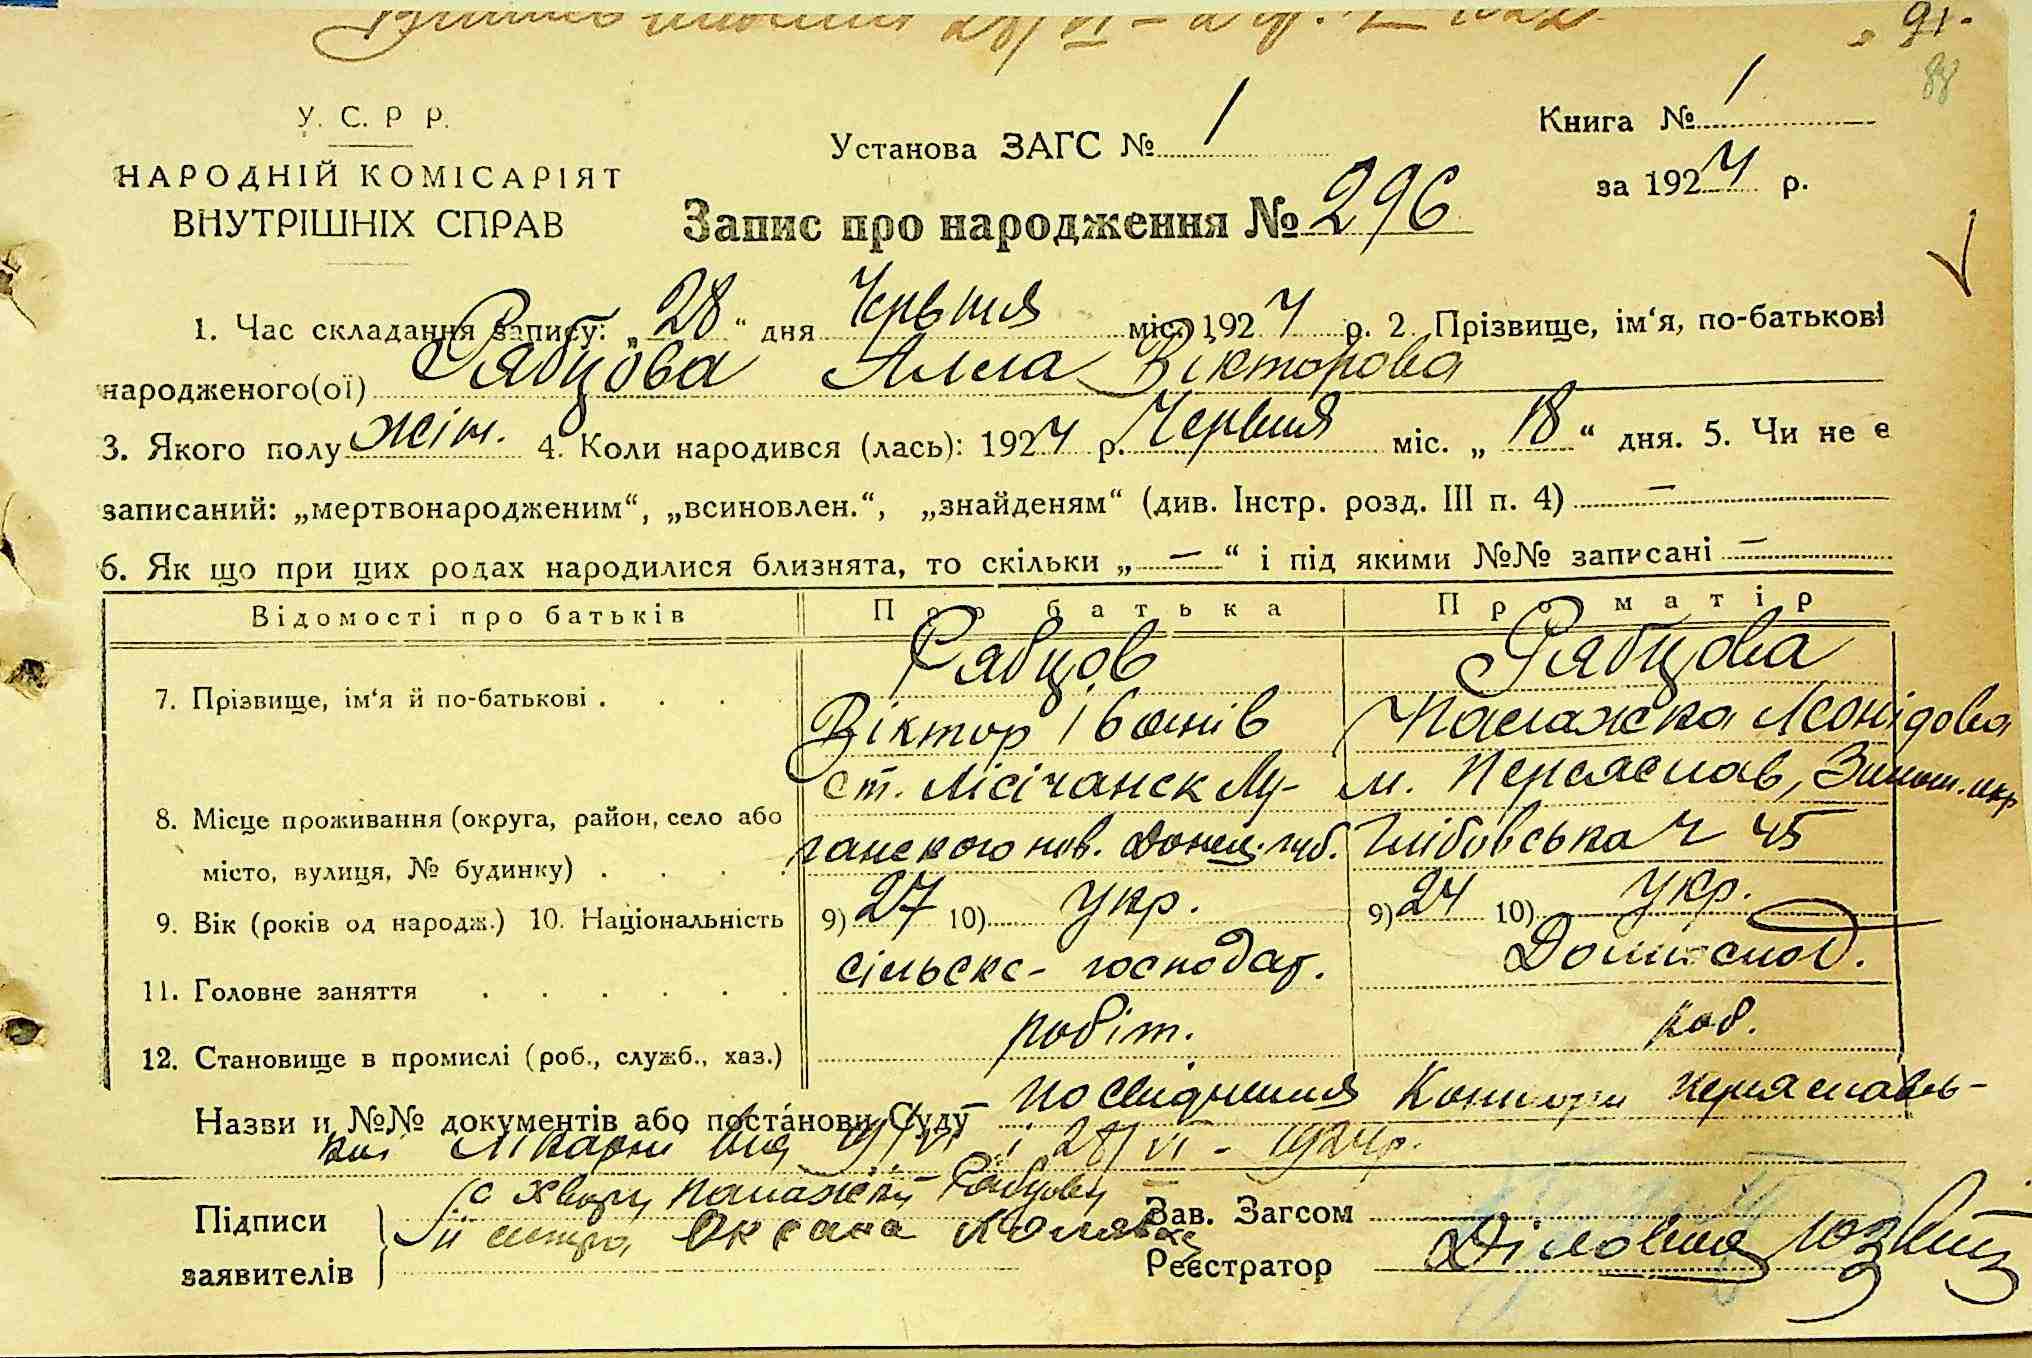 91.
88
У. С. Р Р.
НАРОДНІЙ КОМІСАРІЯТ
ВНУТРІШНІХ СПРАВ
Установа ЗАГС № 1
Книга № 1
за 1924 р.
Запис про народження № 296
1. Час складання запису: „28“ дня Червня міс. 1924 р. 2. Прізвище, ім‘я, по-батькові
народженого(ої) Рябцова Алла Вікторова
3. Якого полу жін. 4. Коли народився (лась): 1924 р. Червня міс. „18“ дня. 5. Чи не є
записаний: „мертвонародженим“, „всиновлен.“, „знайденям“ (див. Інстр. розд. III п. 4) —
6. Як що при цих родах народилися близнята, то скільки „—“ і під якими №№ записані —
Відомості про батьків Про батька Про матір
7. Прізвище, ім‘я й по-батькові . Рябцов Рябцова
Віктор Іванів Палажка Леонідова
8. Місце проживання (округа, район, село або ст. Лісічанск Лу- м. Переяслав,
місто, вулиця, № будинку) . ганского пов. Донец. губ. ч 45
9. Вік (років од народж.) 10. Національність 9) 27 10) Укр. 9) 24 10) Укр.
11. Головне заняття сільско-господар.
12. Становище в промислі (роб., служб., хаз.) робіт. роб.
Назви и №№ документів або постанови Суду посвідчення Контори Переяславсь-
кої лікарні від і 28/VI - 1924 р.
Підписи за хвору Палажку Рябцову Зав. Загсом
її сестра Оксана
заявителів Реєстратор